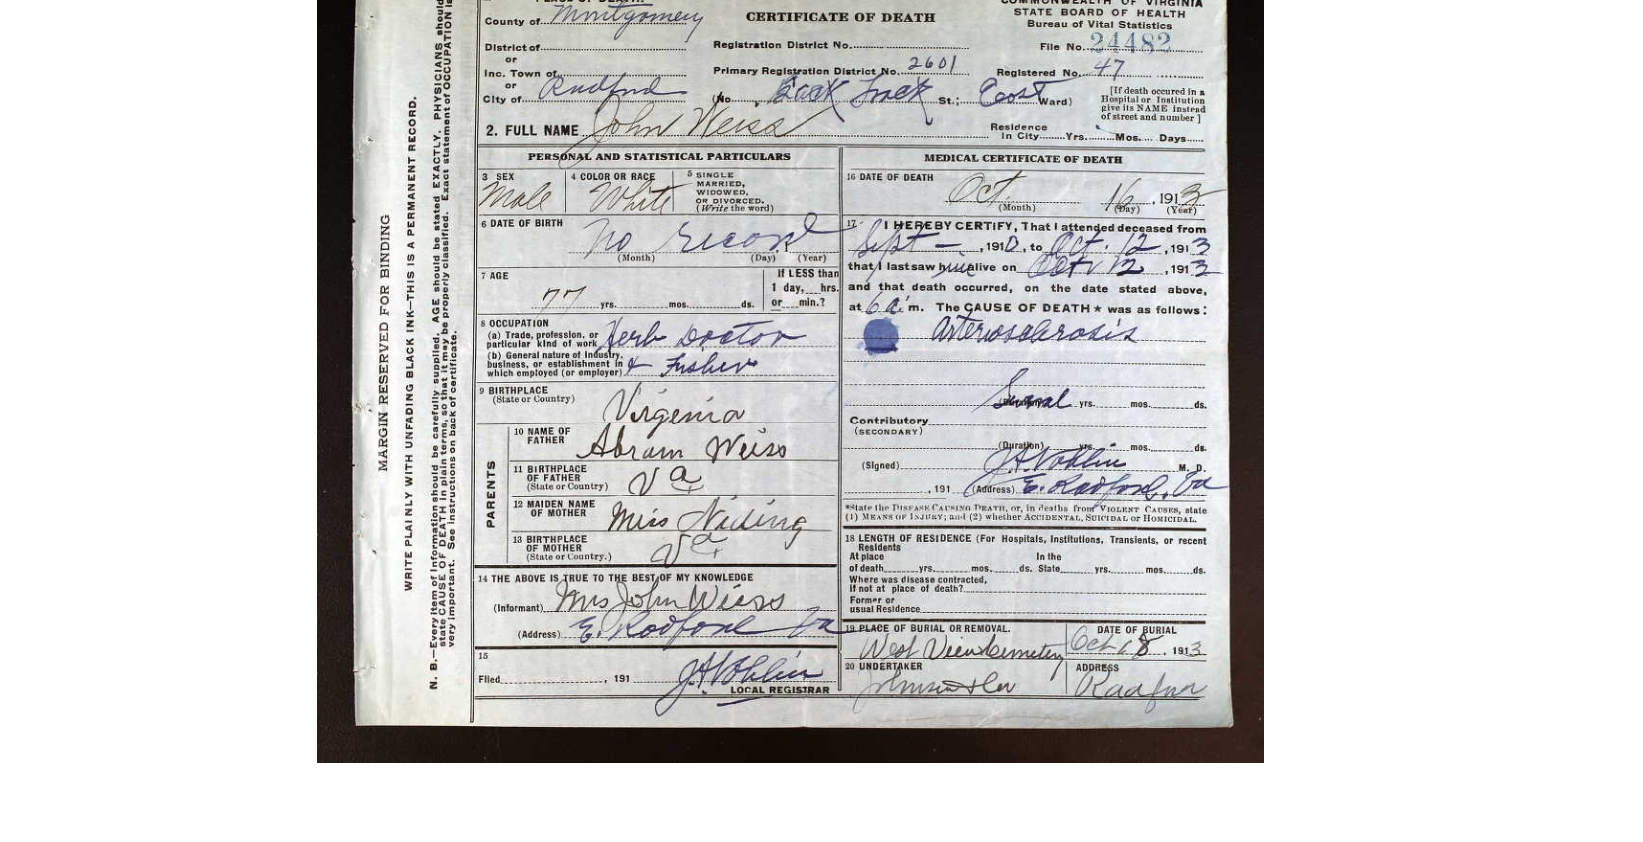 COMMONWEALTH OF VIRGINIA
STATE BOARD OF HEALTH
Bureau of Vital Statistics
CERTIFICATE OF DEATH
County of Montgomery
District of
or
Inc. Town of
or
City of Radford
Registration District No.
Primary Registration District No. 2601
(No St.; East Ward)
File No. 24482
Registered No. 47
[If death occured in a
Hospital or Institution
give its NAME instead
of street and number ]
2. FULL NAME John Weiss
Residence
In City Yrs. Mos. Days
PERSONAL AND STATISTICAL PARTICULARS
3 SEX
Male
4 COLOR OR RACE
White
5 SINGLE
MARRIED,
WIDOWED,
OR DIVORCED.
(Write the word)
6 DATE OF BIRTH
No record
(Month) (Day) (Year)
7 AGE
77 yrs. mos. ds.
If LESS than
1 day, hrs.
or min.?
8 OCCUPATION
(a) Trade, profession, or
particular kind of work Herb Doctor
(b) General nature of Industry,
business, or establishment in
which employed (or employer) & Fisher
9 BIRTHPLACE
(State or Country)
Virginia
PARENTS
10 NAME OF
FATHER
Abram Weiss
11 BIRTHPLACE
OF FATHER
(State or Country)
Va
12 MAIDEN NAME
OF MOTHER
Miss
13 BIRTHPLACE
OF MOTHER
(State or Country.)
Va
14 THE ABOVE IS TRUE TO THE BEST OF MY KNOWLEDGE
(Informant) Mrs John Weiss
(Address) E. Radford Va
15
Filed , 191
LOCAL REGISTRAR
MEDICAL CERTIFICATE OF DEATH
16 DATE OF DEATH
Oct. 16, 1913
(Month) (Day) (Year)
17 I HEREBY CERTIFY, That I attended deceased from
Sept – , 1910, to Oct. 12, 1913
that I last saw him alive on Oct 12, 1913
and that death occurred, on the date stated above,
at 6 a. m. The CAUSE OF DEATH ★ was as follows:
Arterosclerosis
(Duration) Several yrs. mos. ds.
Contributory
(SECONDARY)
(Duration) yrs. mos. ds.
(Signed) M. D.
, 191 (Address) E. Radford, Va
*State the DISEASE CAUSING DEATH, or, in deaths from VIOLENT CAUSES, state
(1) MEANS OF INJURY; and (2) whether ACCIDENTAL, SUICIDAL OR HOMICIDAL.
18 LENGTH OF RESIDENCE (For Hospitals, Institutions, Transients, or recent
Residents
At place In the
of death yrs. mos. ds. State yrs. mos. ds.
Where was disease contracted,
If not at place of death?
Former or
usual Residence
19 PLACE OF BURIAL OR REMOVAL.
West View Cemetery
DATE OF BURIAL
Oct 18, 1913
20 UNDERTAKER
ADDRESS
Radford
MARGIN RESERVED FOR BINDING
WRITE PLAINLY WITH UNFADING BLACK INK—THIS IS A PERMANENT RECORD.
N. B.—Every item of information should be carefully supplied. AGE should be stated EXACTLY. PHYSICIANS should
state CAUSE OF DEATH in plain terms, so that it may be properly classified. Exact statement of OCCUPATION is
very important. See instructions on back of certificate.